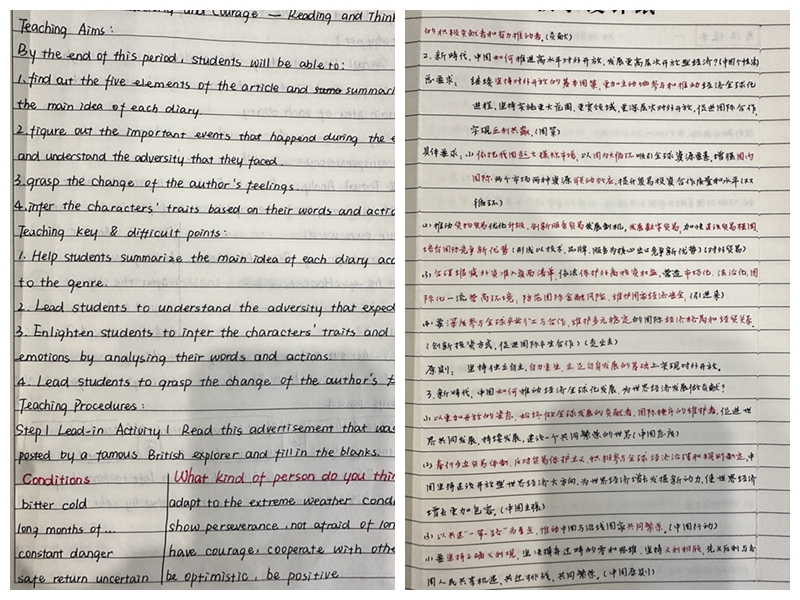 and Courage — Reading and Think
Teaching Aims:
By the end of this period, students will be able to:
1. find out the five elements of the article and summari
the main idea of each diary.
2. figure out the important events that happend during the e
and understand the adversity that they faced.
3. grasp the change of the author's feelings.
4. infer the characters' traits based on their words and actio
Teaching key & difficult points:
1. Help students summarize the main idea of each diary acc
to the genre.
2. Lead students to understand the adversity that exped
3. Enlighten students to infer the characters' traits and
emotions by analysing their words and actions.
4. Lead students to grasp the change of the author's f
Teaching Procedures:
Step 1 Lead-in Activity 1 Read this advertisement that was
posted by a famous British explorer and fill in the blanks.
Conditions What kind of person do you thin
bitter cold adapt to the extreme weather cond
long months of... show perseverance, not afraid of lon
constant danger have courage, cooperate with othe
safe return uncertain be optimistic, be positive
的积极贡献者和有力推动者。(贡献)
2. 新时代,中国如何推进高水平对外开放,发展更高层次开放型经济?(中国个体)
总要求: 继续坚持对外开放的基本国策,更加主动地参与和推动经济全球化
进程,坚持实施更大范围、更宽领域、更深层次对外开放,促进国际合作,
实现互利共赢。(国策)
具体要求: (1) 依托我国超大规模市场,以国内大循环吸引全球资源要素,增强国内
国际两个市场两种资源联动效应,提升贸易投资合作质量和水平(双
循环)
(2) 推动货物贸易优化升级,创新服务贸易发展机制,发展数字贸易,加快建设贸易强国,
培育国际竞争新优势(形成以技术、品牌、服务为核心出口竞争新优势)(对外贸易)
(3) 合理缩减外资准入负面清单,依法保护外商投资权益,营造市场化、法治化、国
际化一流营商环境,防范国际金融风险,维护国家经济安全(引进来)
(4) 要深度参与全球产业分工与合作,维护多元稳定的国际经济格局和经贸关系
(创新投资方式,促进国际产能合作)(走出去)
原则: 坚持独立自主、自力更生,立足自身发展的基础上实现对外开放。
3. 新时代,中国如何推动经济全球化发展,为世界经济发展做贡献?
(1) 以更加开放的姿态,始终做全球发展的贡献者、国际秩序的维护者,促进世
界共同发展,持续发展,建设一个共同繁荣的世界(中国态度)
(2) 奉行多边贸易体制,反对贸易保护主义,积极参与全球经济治理和规则制定,中
国坚持建设开放型世界经济大方向,为世界经济增长发掘新动力,使世界经济
增长更加包容。(中国主张)
(3) 以共建"一带一路"为重点,推动中国与沿线国家共同繁荣。(中国行动)
(4) 要坚持正确义利观,坚决摒弃过时的零和思维,坚持义利相兼,先义后利与各
国人民共享机遇,共迎挑战,共同繁荣。(中国原则)